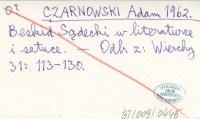 CZARNOWSKI Adam 1962.
Beskid Sądecki w literaturze
i sztuce. — Odb. z: Wierchy
31: 113–130.